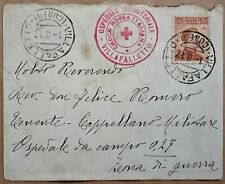 OSPEDALE TERRITORIALE
CROCE ROSSA ITALIANA
VILLAFALLETTO
VILLAFALLETTO
(CUNEO)
Molto Reverendo
Rev. don Felice Romero
Tenente-Cappellano Militare
Ospedale da campo 027
Zona di guerra